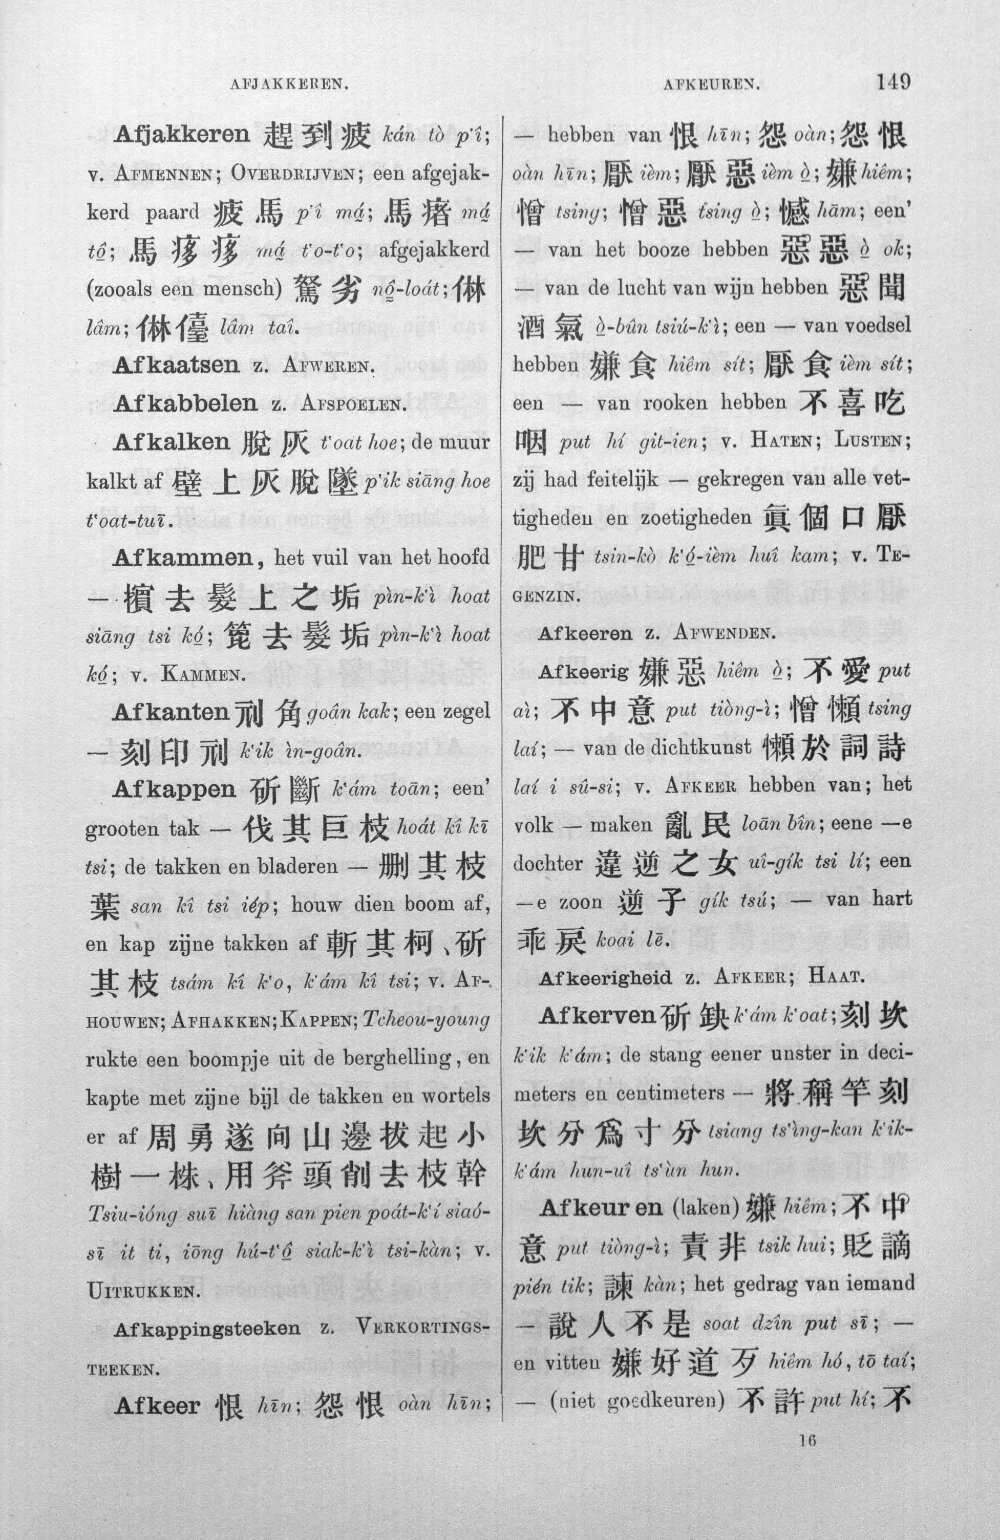 AFJAKKEREN.
Afjakkeren 趕到疲 kán tò p‘î;
v. AFMENNEN; OVERDRIJVEN; een afgejak-
kerd paard 疲馬 p‘î má; 馬瘏 má
tô; 馬痑痑 má t‘o-t‘o; afgejakkerd
(zooals een mensch) 駑劣 nô-loát; 㑣
lâm; 㑣儓 lâm taî.
Afkaatsen z. AFWEREN.
Afkabbelen z. AFSPOELEN.
Afkalken 脫灰 t‘oat hoe; de muur
kalkt af 壁上灰脫墜 p‘ik siāng hoe
t‘oat-tuī.
Afkammen, het vuil van het hoofd
— 擯去髮上之垢 pìn-k‘ì hoat
siāng tsi kó; 篦去髮垢 pìn-k‘ì hoat
kó; v. KAMMEN.
Afkanten 刓角 goân kak; een zegel
— 刻印刓 k‘ik ìn-goân.
Afkappen 斫斷 k‘ám toān; een’
grooten tak — 伐其巨枝 hoát kî kī
tsi; de takken en bladeren — 刪其枝
葉 san kî tsi iép; houw dien boom af,
en kap zijne takken af 斬其柯、斫
其枝 tsám kî k‘o, k‘ám kî tsi; v. AF-
HOUWEN; AFHAKKEN; KAPPEN; Tcheou-young
rukte een boompje uit de berghelling, en
kapte met zijne bijl de takken en wortels
er af 周勇遂向山邊拔起小
樹一株、用斧頭削去枝幹
Tsiu-ióng suī hiàng san pien poát-k‘í siaó-
sī it ti, iōng hú-t‘ô siak-k‘ì tsi-kàn; v.
UITRUKKEN.
Afkappingsteeken z. VERKORTINGS-
TEEKEN.
Afkeer 恨 hīn; 怨恨 oàn hīn;
AFKEUREN. 149
— hebben van 恨 hīn; 怨 oàn; 怨恨
oàn hīn; 厭 ièm; 厭惡 ièm ò; 嫌 hiêm;
憎 tsing; 憎惡 tsing ò; 憾 hām; een’
— van het booze hebben 惡惡 ò ok;
— van de lucht van wijn hebben 惡聞
酒氣 ò-bûn tsiú-k‘ì; een — van voedsel
hebben 嫌食 hiêm sít; 厭食 ièm sít;
een — van rooken hebben 不喜吃
咽 put hí git-ien; v. HATEN; LUSTEN;
zij had feitelijk — gekregen van alle vet-
tigheden en zoetigheden 眞個口厭
肥甘 tsin-kò k‘ó-ièm huî kam; v. TE-
GENZIN.
Afkeeren z. AFWENDEN.
Afkeerig 嫌惡 hiêm ò; 不愛 put
aì; 不中意 put tiòng-ì; 憎懶 tsing
laí; — van de dichtkunst 懶於詞詩
laí i sû-si; v. AFKEER hebben van; het
volk — maken 亂民 loān bîn; eene —e
dochter 違逆之女 uî-gík tsi lí; een
—e zoon 逆子 gík tsú; — van hart
乖戾 koai lē.
Afkeerigheid z. AFKEER; HAAT.
Afkerven 斫缺 k‘ám k‘oat; 刻坎
k‘ik k‘ám; de stang eener unster in deci-
meters en centimeters — 將稱竿刻
坎分爲寸分 tsiang ts‘ìng-kan k‘ik-
k‘ám hun-uî ts‘ùn hun.
Afkeuren (laken) 嫌 hiêm; 不中
意 put tiòng-ì; 責非 tsik hui; 貶謫
pién tik; 諫 kàn; het gedrag van iemand
— 說人不是 soat dzîn put sī; —
en vitten 嫌好道歹 hiêm hó, tō taí;
— (niet goedkeuren) 不許 put hí; 不
16